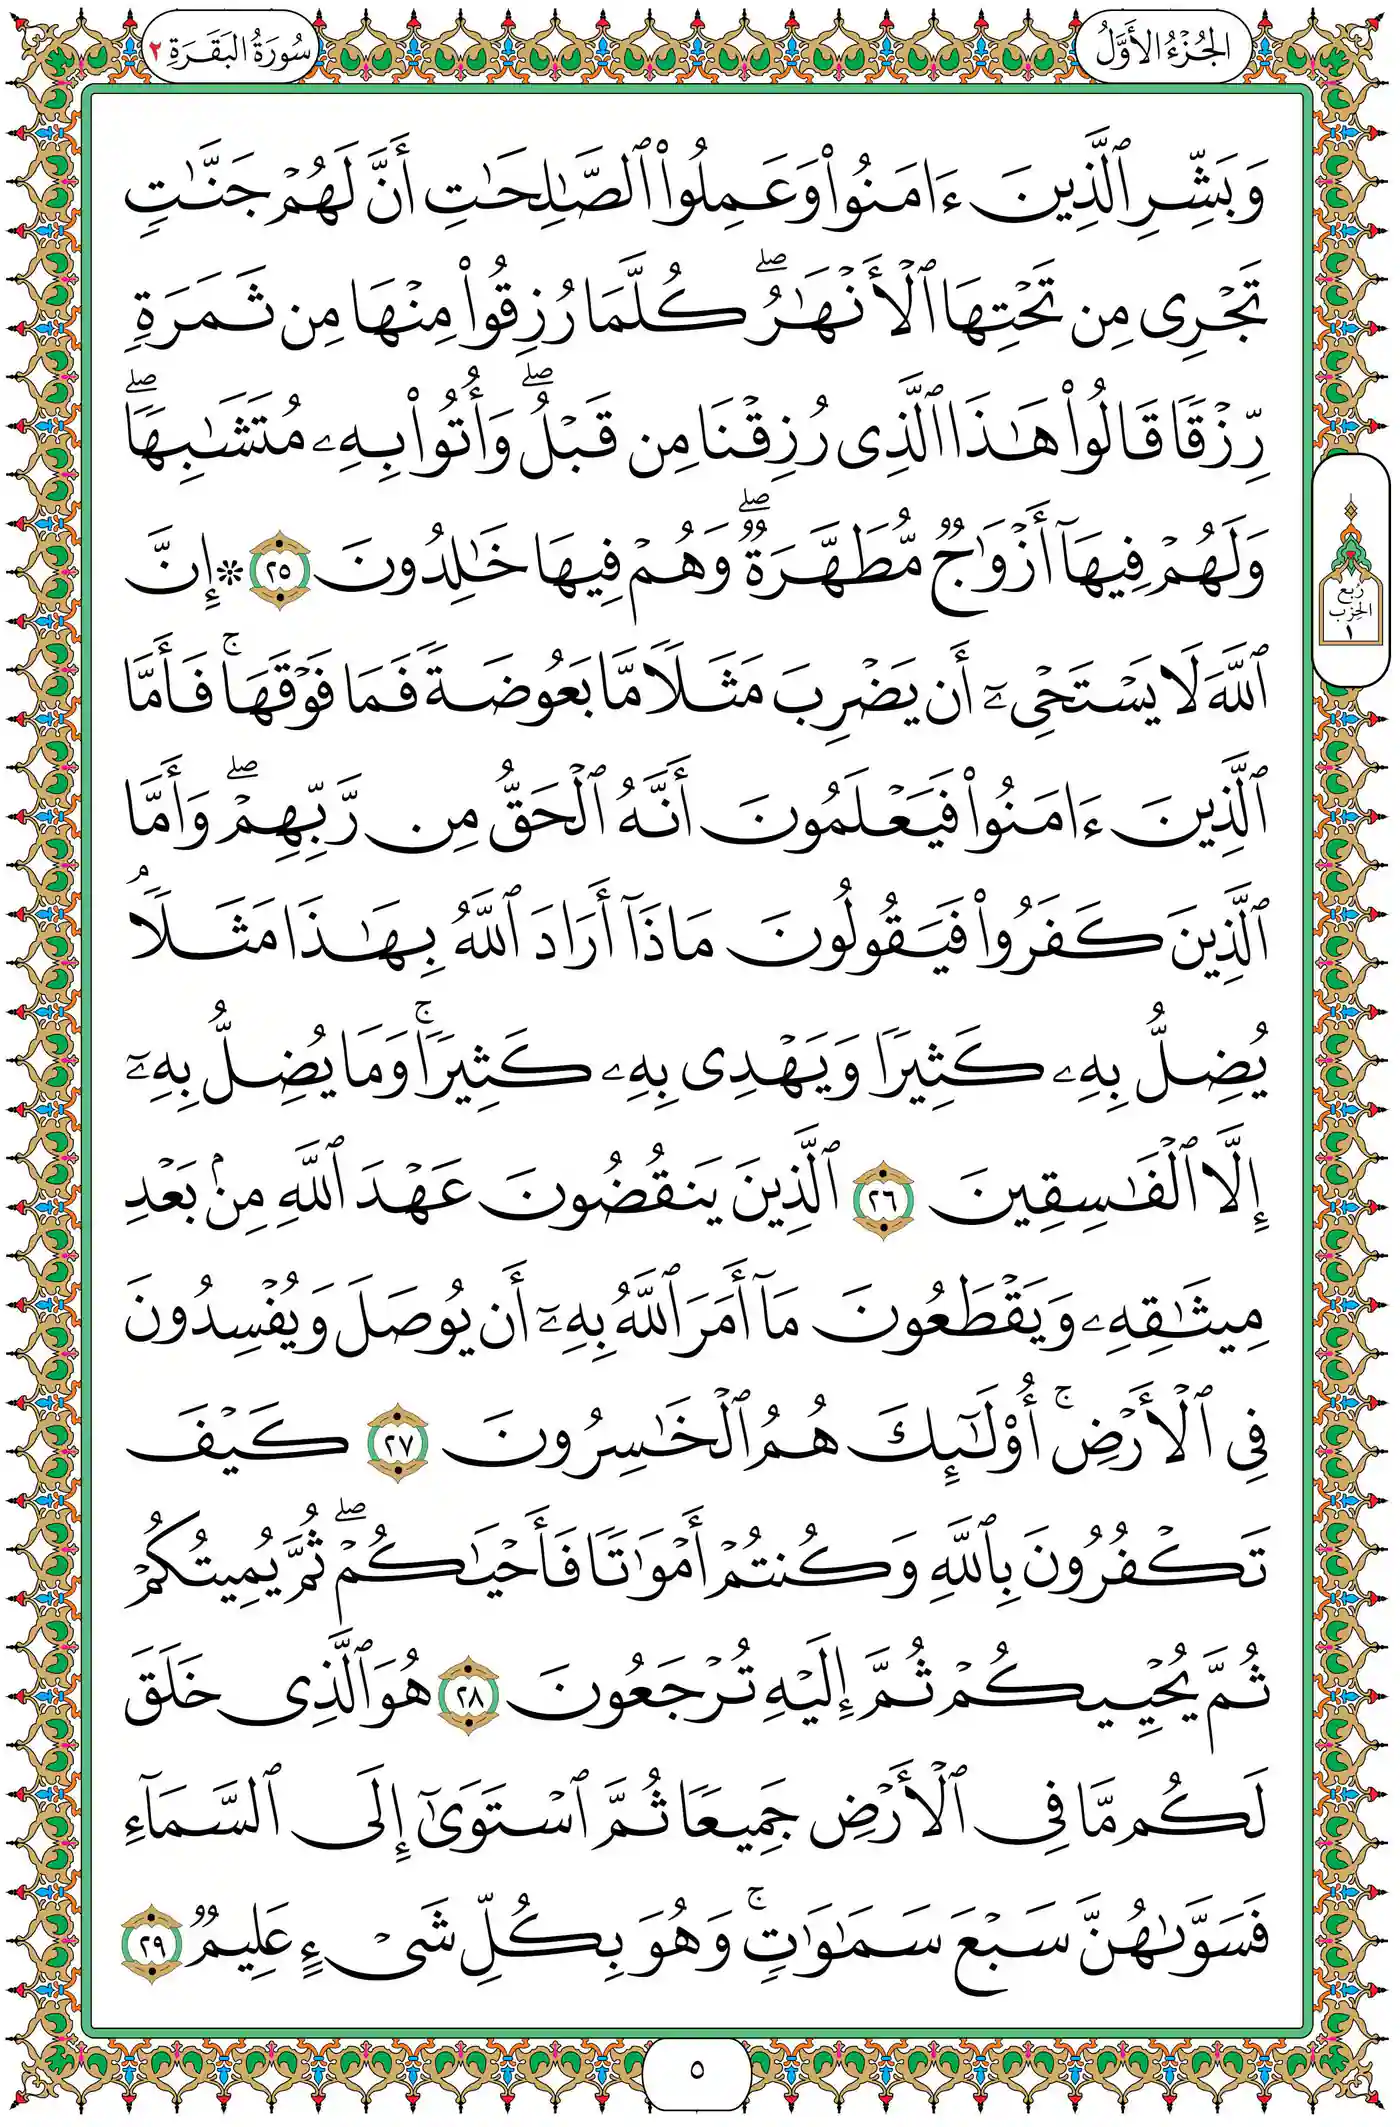 الجُزْءُ الأَوَّلُ
سُورَةُ البَقَرَةِ ٢
وَبَشِّرِ ٱلَّذِينَ ءَامَنُوا۟ وَعَمِلُوا۟ ٱلصَّـٰلِحَـٰتِ أَنَّ لَهُمْ جَنَّـٰتٍ
تَجْرِى مِن تَحْتِهَا ٱلْأَنْهَـٰرُ ۖ كُلَّمَا رُزِقُوا۟ مِنْهَا مِن ثَمَرَةٍ
رِّزْقًا قَالُوا۟ هَـٰذَا ٱلَّذِى رُزِقْنَا مِن قَبْلُ ۖ وَأُتُوا۟ بِهِۦ مُتَشَـٰبِهًا ۖ
وَلَهُمْ فِيهَآ أَزْوَٰجٌ مُّطَهَّرَةٌ ۖ وَهُمْ فِيهَا خَـٰلِدُونَ ٢٥ * إِنَّ
ٱللَّهَ لَا يَسْتَحْىِۦٓ أَن يَضْرِبَ مَثَلًا مَّا بَعُوضَةً فَمَا فَوْقَهَا ۚ فَأَمَّا
ٱلَّذِينَ ءَامَنُوا۟ فَيَعْلَمُونَ أَنَّهُ ٱلْحَقُّ مِن رَّبِّهِمْ ۖ وَأَمَّا
ٱلَّذِينَ كَفَرُوا۟ فَيَقُولُونَ مَاذَآ أَرَادَ ٱللَّهُ بِهَـٰذَا مَثَلًا ۘ
يُضِلُّ بِهِۦ كَثِيرًا وَيَهْدِى بِهِۦ كَثِيرًا ۚ وَمَا يُضِلُّ بِهِۦٓ
إِلَّا ٱلْفَـٰسِقِينَ ٢٦ ٱلَّذِينَ يَنقُضُونَ عَهْدَ ٱللَّهِ مِنۢ بَعْدِ
مِيثَـٰقِهِۦ وَيَقْطَعُونَ مَآ أَمَرَ ٱللَّهُ بِهِۦٓ أَن يُوصَلَ وَيُفْسِدُونَ
فِى ٱلْأَرْضِ ۚ أُو۟لَـٰٓئِكَ هُمُ ٱلْخَـٰسِرُونَ ٢٧ كَيْفَ
تَكْفُرُونَ بِٱللَّهِ وَكُنتُمْ أَمْوَٰتًا فَأَحْيَـٰكُمْ ۖ ثُمَّ يُمِيتُكُمْ
ثُمَّ يُحْيِيكُمْ ثُمَّ إِلَيْهِ تُرْجَعُونَ ٢٨ هُوَ ٱلَّذِى خَلَقَ
لَكُم مَّا فِى ٱلْأَرْضِ جَمِيعًا ثُمَّ ٱسْتَوَىٰٓ إِلَى ٱلسَّمَآءِ
فَسَوَّىٰهُنَّ سَبْعَ سَمَـٰوَٰتٍ ۚ وَهُوَ بِكُلِّ شَىْءٍ عَلِيمٌ ٢٩
رُبع
الحِزب
١
٥